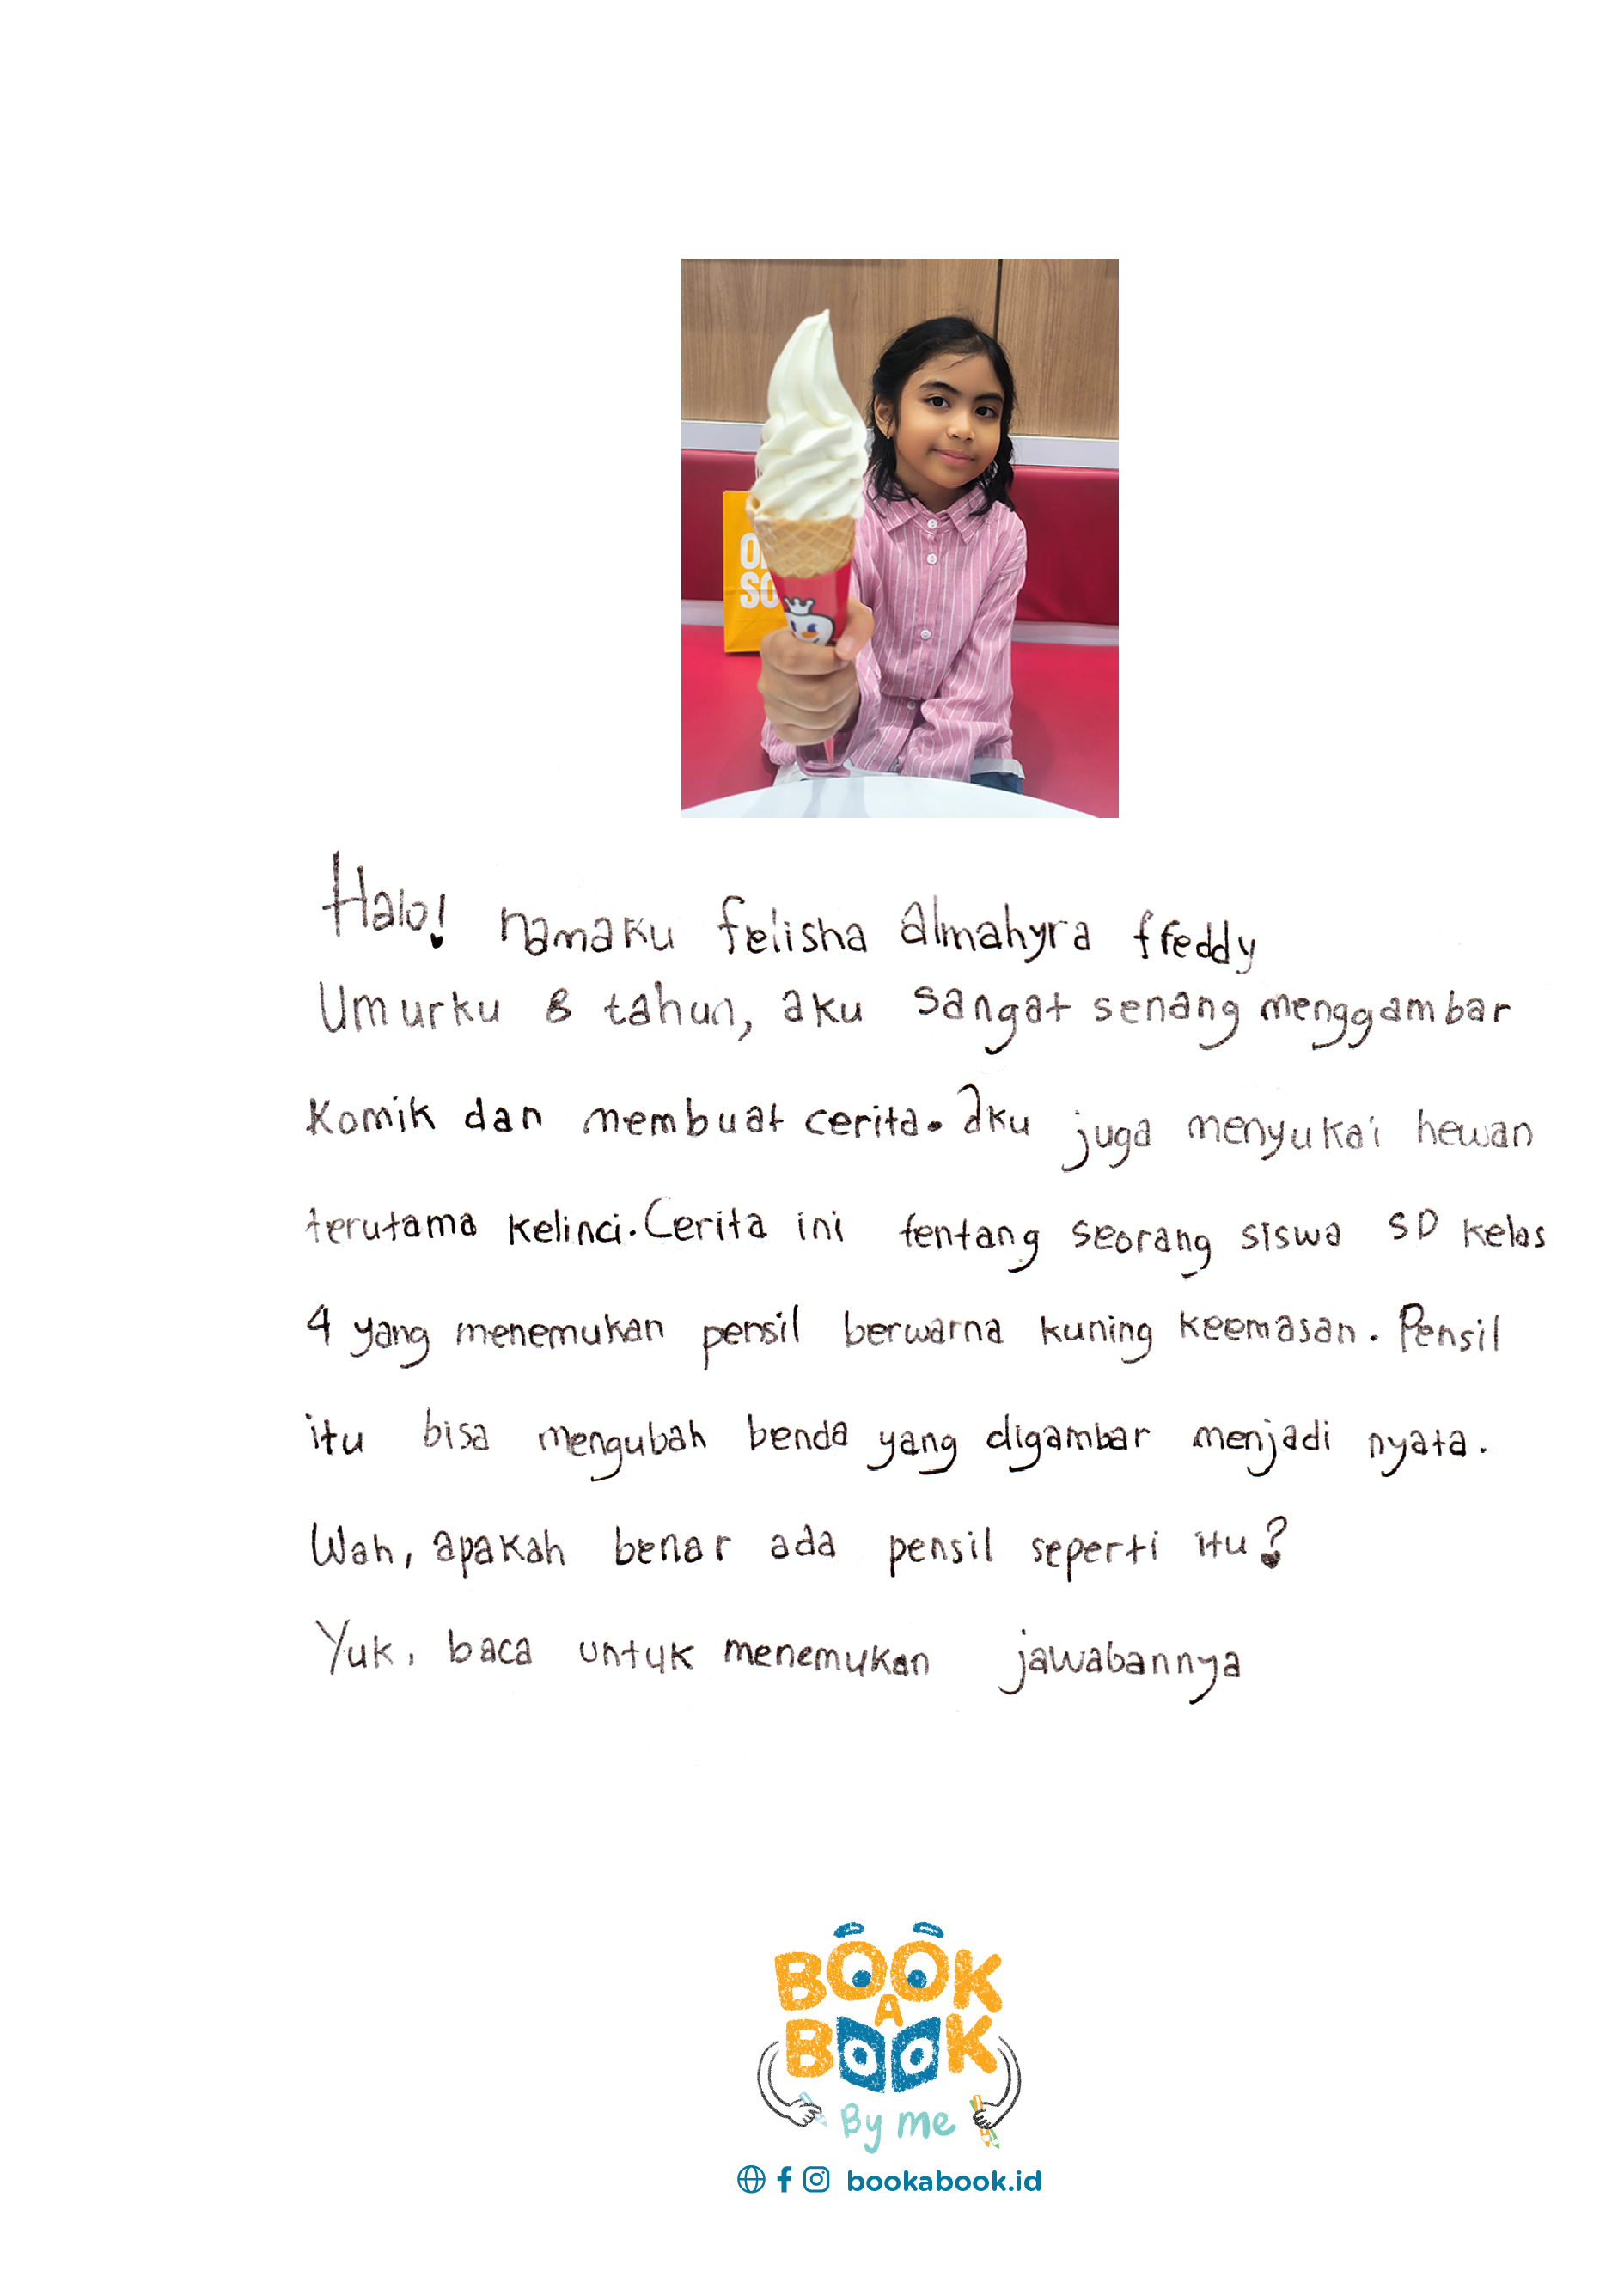 OH
SO
Halo! namaku felisha almahyra ffeddy
Umurku 8 tahun, aku sangat senang menggambar
Komik dan membuat cerita. aku juga menyukai hewan
terutama kelinci. Cerita ini tentang seorang siswa SD kelas
4 yang menemukan pensil berwarna kuning keemasan. Pensil
itu bisa mengubah benda yang digambar menjadi nyata.
Wah, apakah benar ada pensil seperti itu?
Yuk, baca untuk menemukan jawabannya
BOOK
A
BOOK
By me
bookabook.id